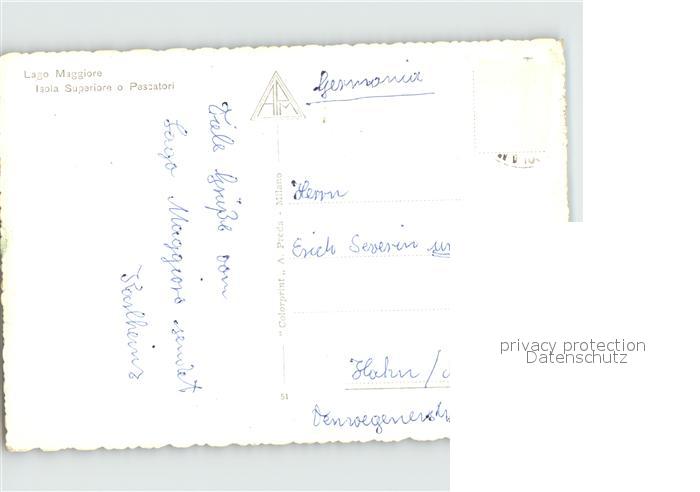 Lago Maggiore
Isola Superiore o Pescatori
Viele Grüße vom
Lago Maggiore sendet
Karlheinz
"Colorprint" A. Preda - Milano
51
Germania
Herrn
Erich Severin
Hahn/
privacy protection
Datenschutz